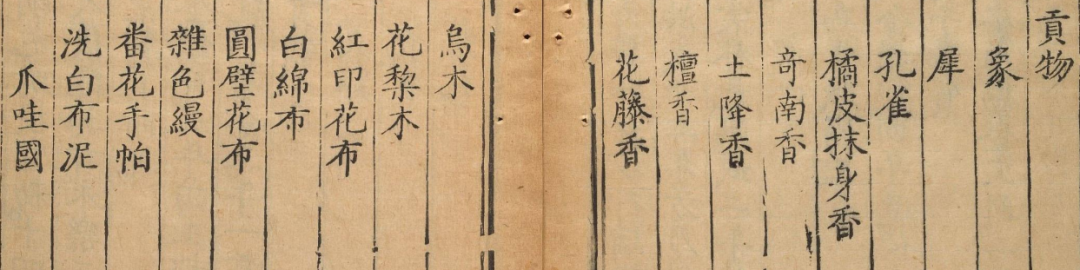 貢物
象
犀
孔雀
橘皮抹身香
竒南香
土降香
檀香
花藤香
烏木
花棃木
紅印花布
白綿布
圓壁花布
雜色縵
番花手帕
洗白布泥
爪哇國